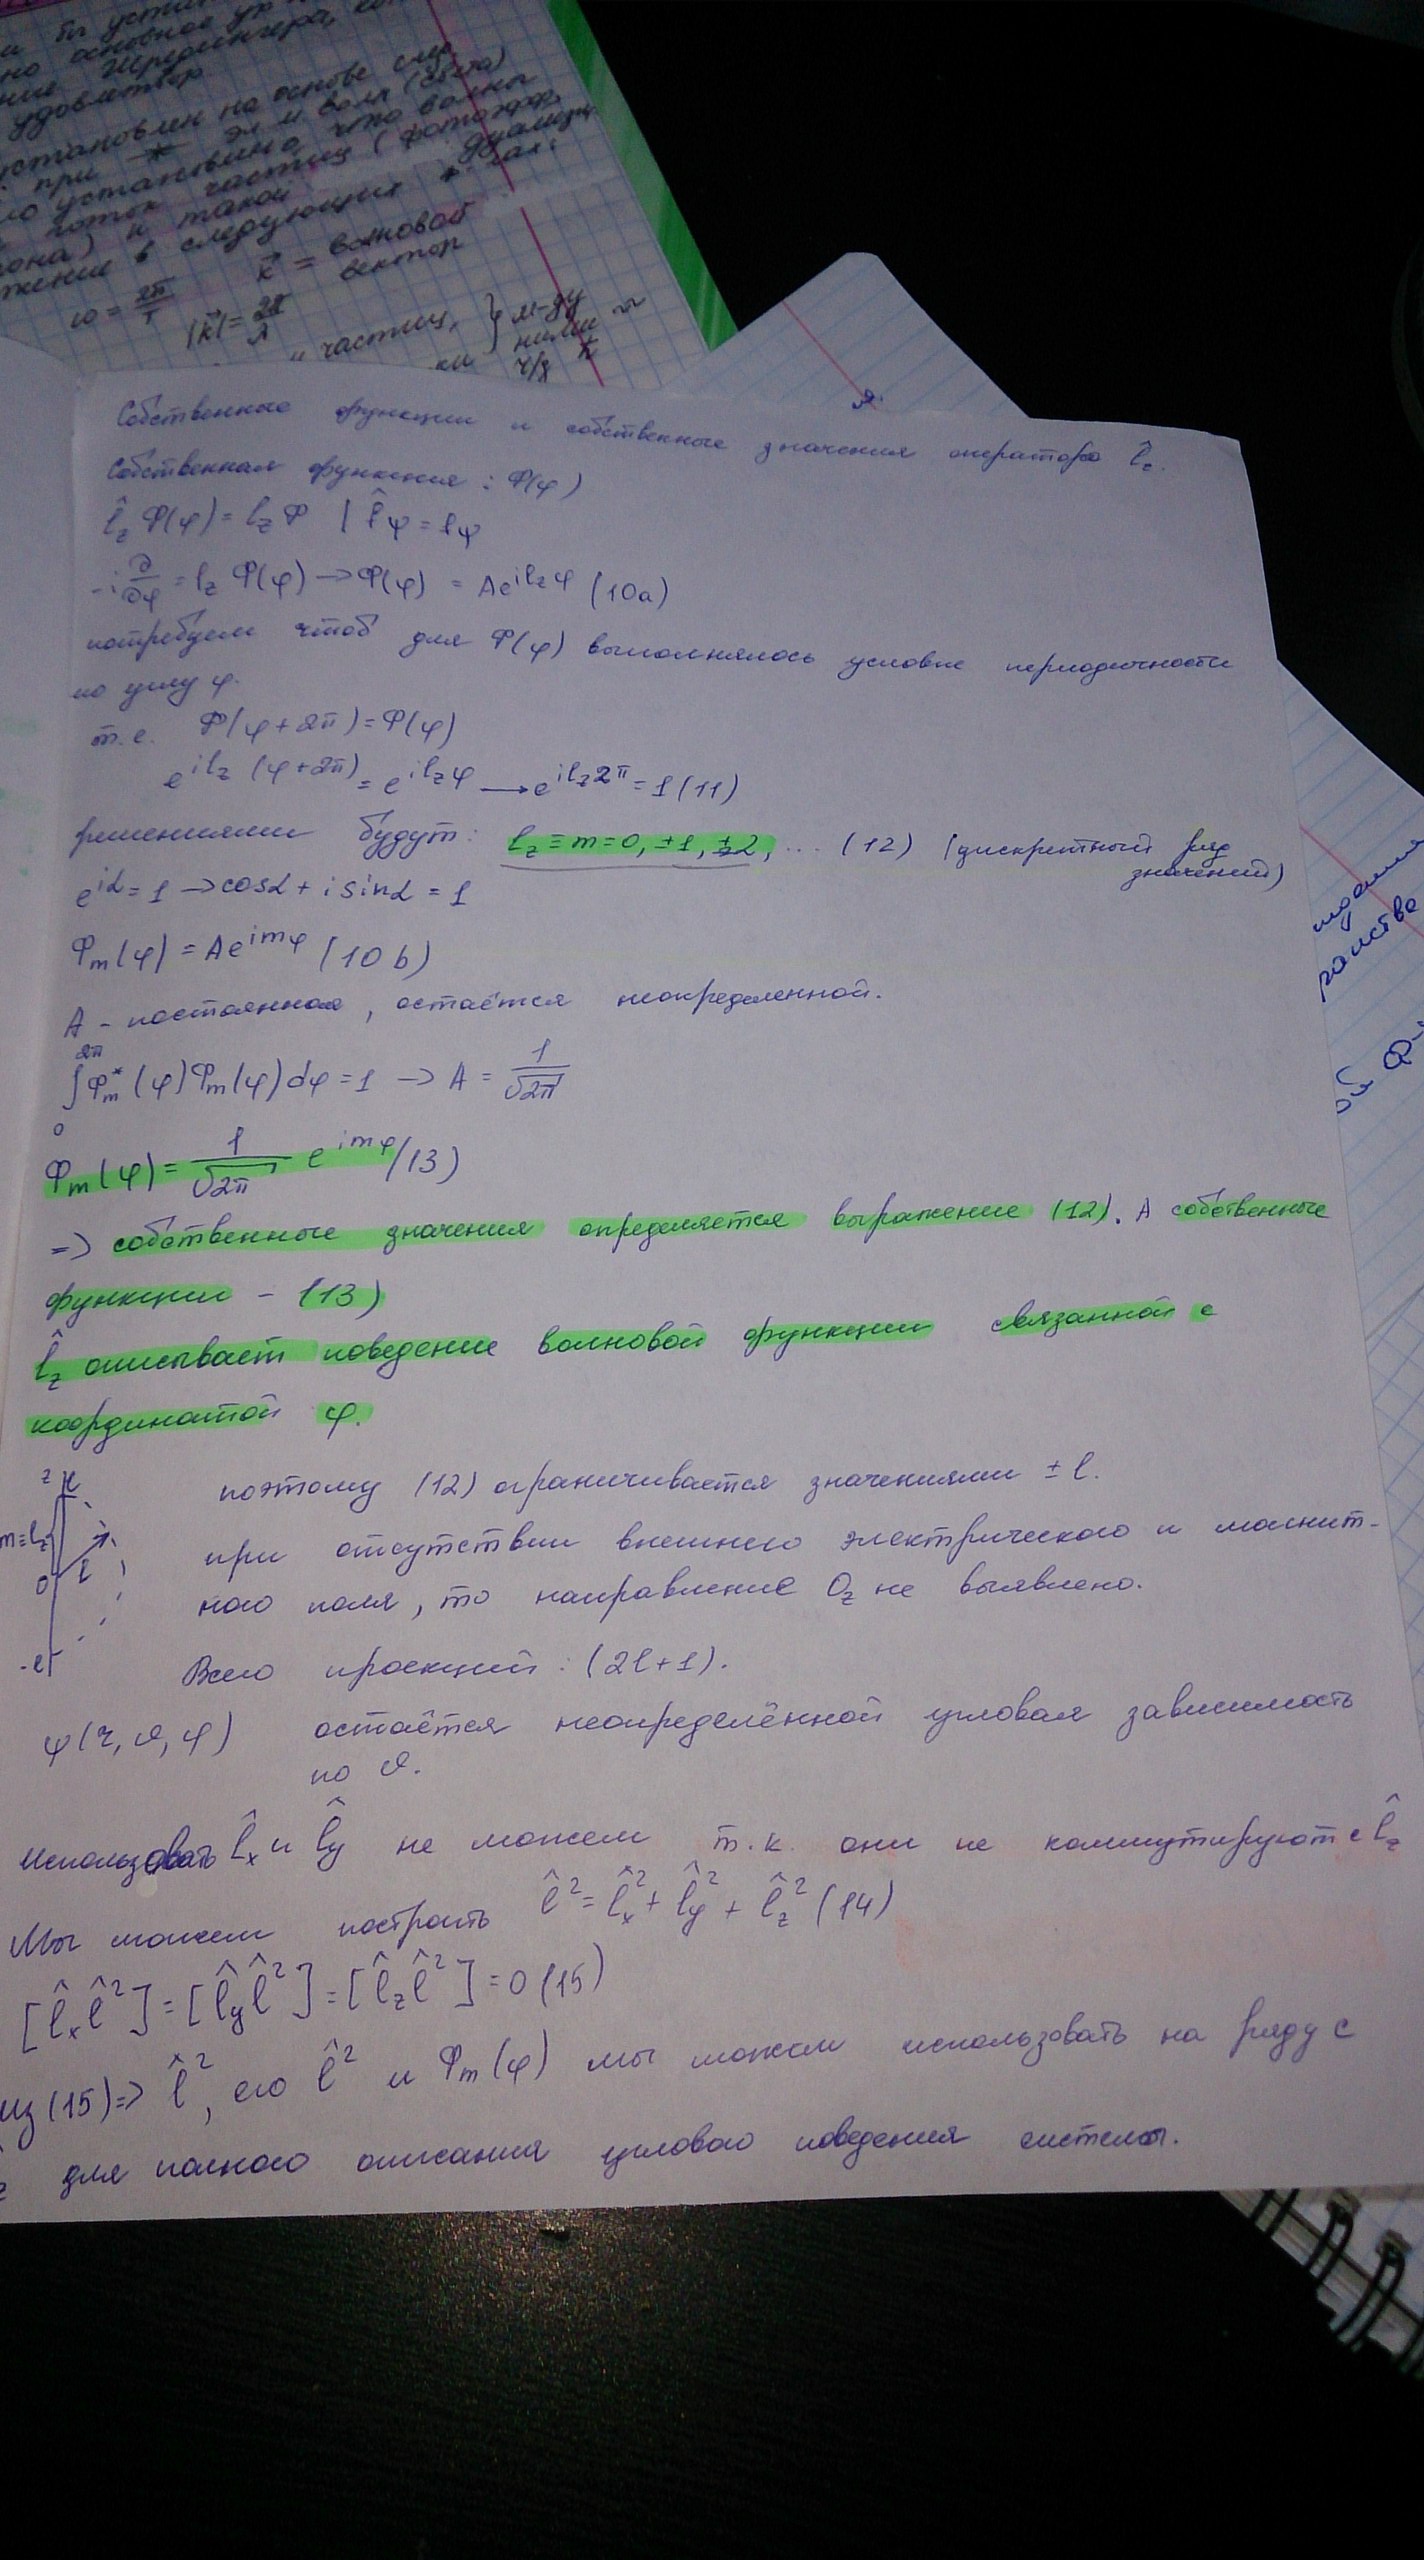 но основное ур
ние Шредингера,
удовлетвор
установлен на основе
при эл м волн (света)
ло установлено, что волны
поток частиц (фотоэфф.
она) и такой дуализм
жение в следующих
ω = 2π/T k⃗ = волновой
вектор
|k⃗| = 2π/λ
и частиц, } м-ду
ними
ч/з ħ
Собственные функции и собственные значения оператора l̂z.
Собственная функция: Φ(φ)
l̂z Φ(φ) = lz Φ | f̂ψ = fψ
-i ∂/∂φ = lz Φ(φ) → Φ(φ) = Ae^{ilzφ} (10a)
потребуем чтоб для Φ(φ) выполнялось условие периодичности
по углу φ.
т.е. Φ(φ+2π) = Φ(φ)
e^{ilz(φ+2π)} = e^{ilzφ} → e^{ilz2π} = 1 (11)
решениями будут: lz ≡ m = 0, ±1, ±2, ... (12) (дискретный ряд
значений)
e^{iα} = 1 → cosα + i sinα = 1
Φm(φ) = Ae^{imφ} (10 b)
A - постоянная, остаётся неопределенной.
∫₀^{2π} Φm*(φ)Φm(φ)dφ = 1 → A = 1/√2π
Φm(φ) = 1/√2π e^{imφ} (13)
=> собственные значения определяется выражение (12). А собственные
функции - (13)
l̂z описывает поведение волновой функции связанной с
координатой φ.
z l
m=lz
0 l
-l
поэтому (12) ограничивается значениями ± l.
при отсутствии внешнего электрического и магнит-
ного поля, то направление Oz не выявлено.
Всего проекций: (2l+1).
ψ(r, ϑ, φ) остаётся неопределённой угловая зависимость
по ϑ.
Использовать l̂x и l̂y не можем т.к. они не коммутируют с l̂z
Мы можем построить l̂² = l̂x² + l̂y² + l̂z² (14)
[l̂x l̂²] = [l̂y l̂²] = [l̂z l̂²] = 0 (15)
из (15) => l̂², его l̂² и Φm(φ) мы можем использовать на ряду с
z для полного описания углового поведения системы.